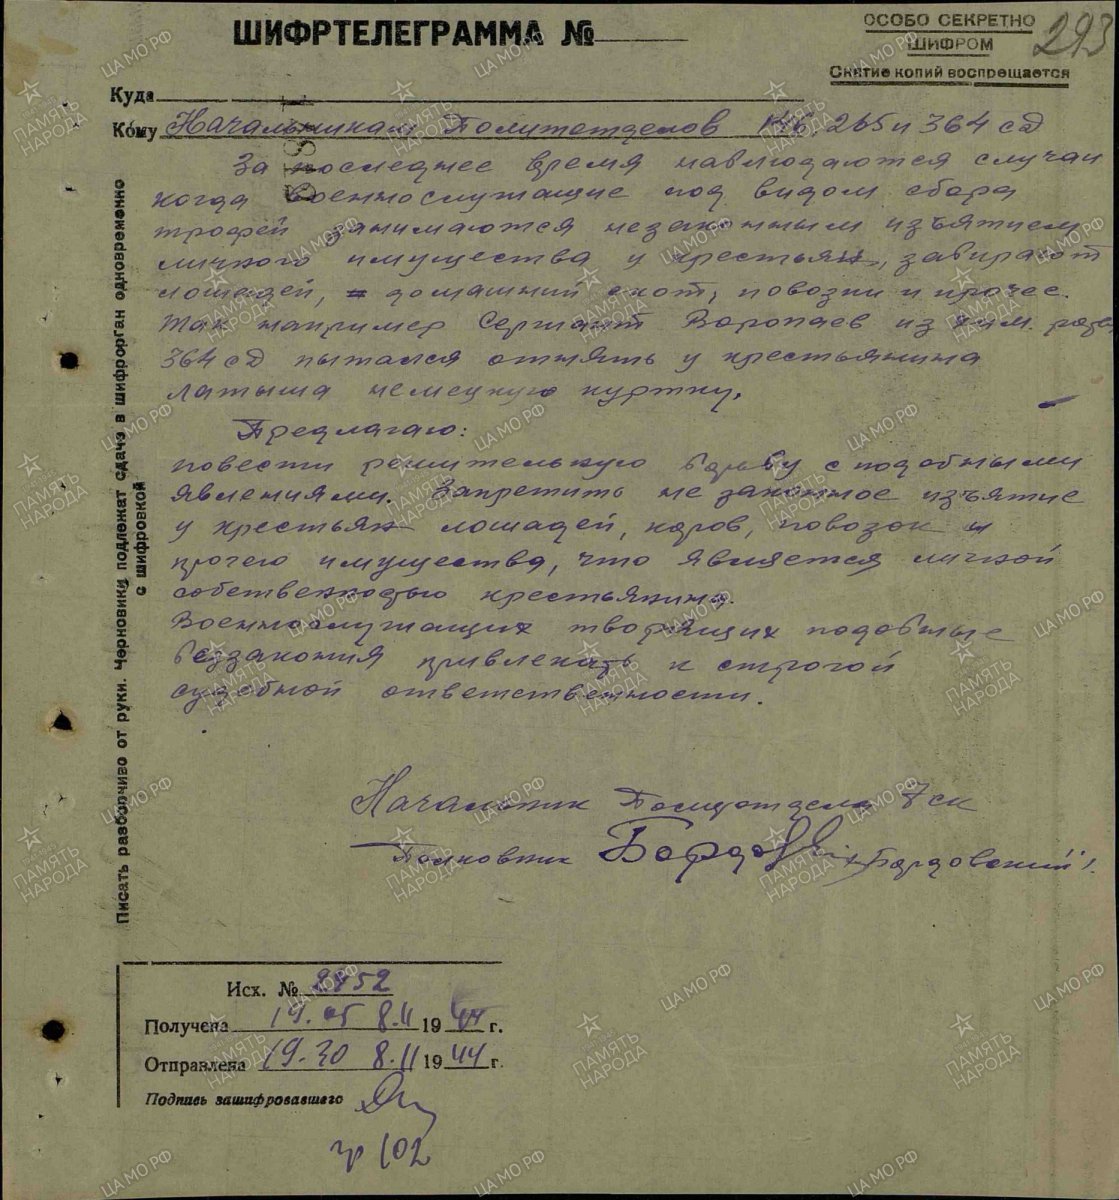 ШИФРТЕЛЕГРАММА №
ОСОБО СЕКРЕТНО
ШИФРОМ
Снятие копий воспрещается
293
Куда
Кому Начальникам Политотделов 146, 265 и 364 сд
За последнее время наблюдаются случаи
когда военнослужащие под видом сбора
трофей занимаются незаконным изъятием
личного имущества у крестьян, забирают
лошадей, домашний скот, повозки и прочее.
Так например Сержант Воропаев из хим. разв.
364 сд пытался отнять у крестьянина
латыша немецкую куртку.
Предлагаю:
повести решительную борьбу с подобными
явлениями. Запретить не законное изъятие
у крестьян лошадей, коров, повозок и
прочего имущества, что является личной
собственностью крестьянина.
Военнослужащих творящих подобные
беззакония привлекать к строгой
судебной ответственности.
Начальник Политотдела 7 ск
Полковник /Бардовский/
Писать разборчиво от руки. Черновики подлежат сдаче в шифрорган одновременно
с шифровкой
Исх. № 2852
Получена 19.05 8.11 1944 г.
Отправлена 19.30 8.11 1944 г.
Подпись зашифровавшего
гр 102
ЦА МО РФ
ПАМЯТЬ
НАРОДА